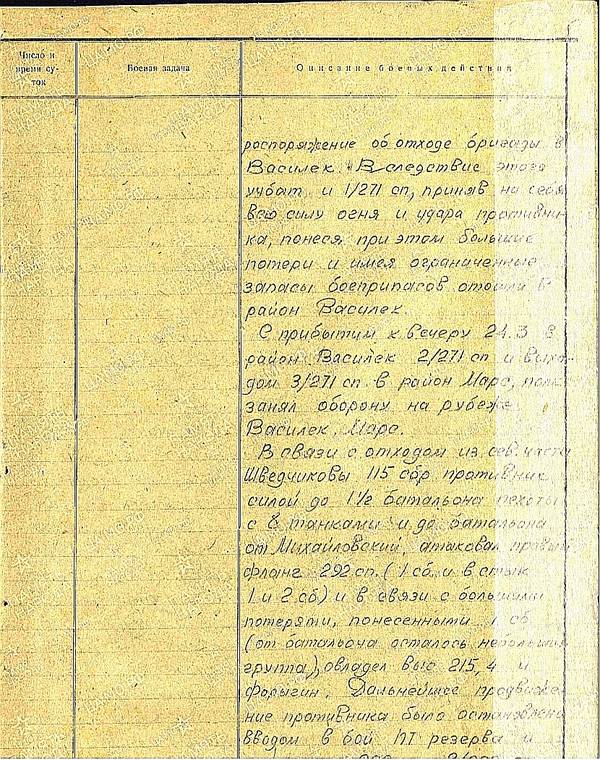 Число и
время су-
ток
Боевая задача
Описание боевых действий
распоряжение об отходе бригады в
Василек. Вследствие этого
учбат и 1/271 сп, приняв на себя
всю силу огня и удара противни-
ка, понеся при этом большие
потери и имея ограниченные
запасы боеприпасов отошли в
район Василек.
С прибытим к вечеру 24.3 в
район Василек 2/271 сп и выхо-
дом 3/271 сп в район Марс, полк
занял оборону на рубеже
Василек, Марс.
В связи с отходом из сев. части
Шведчиковы 115 сбр, противник
силой до 1½ батальона пехоты
с 8 танками и до батальона
от Михайловский, атаковал правый
фланг 292 сп. (1 сб и в стык
1 и 2 сб) и в связи с большими
потеряти, понесенными 1 сб
(от батальона осталось небольшая
группа), овладел выс 215,4 и
Фолыгин. Дальнейшее продвиже-
ние противника было остановлено
вводом в бой ПТ резерва и